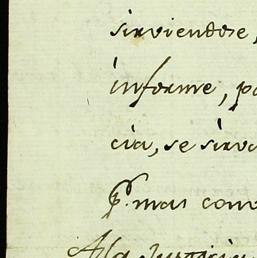 sirviendose,
informe, pa
cia, se sirva
p.r mas conv
A la Justicia